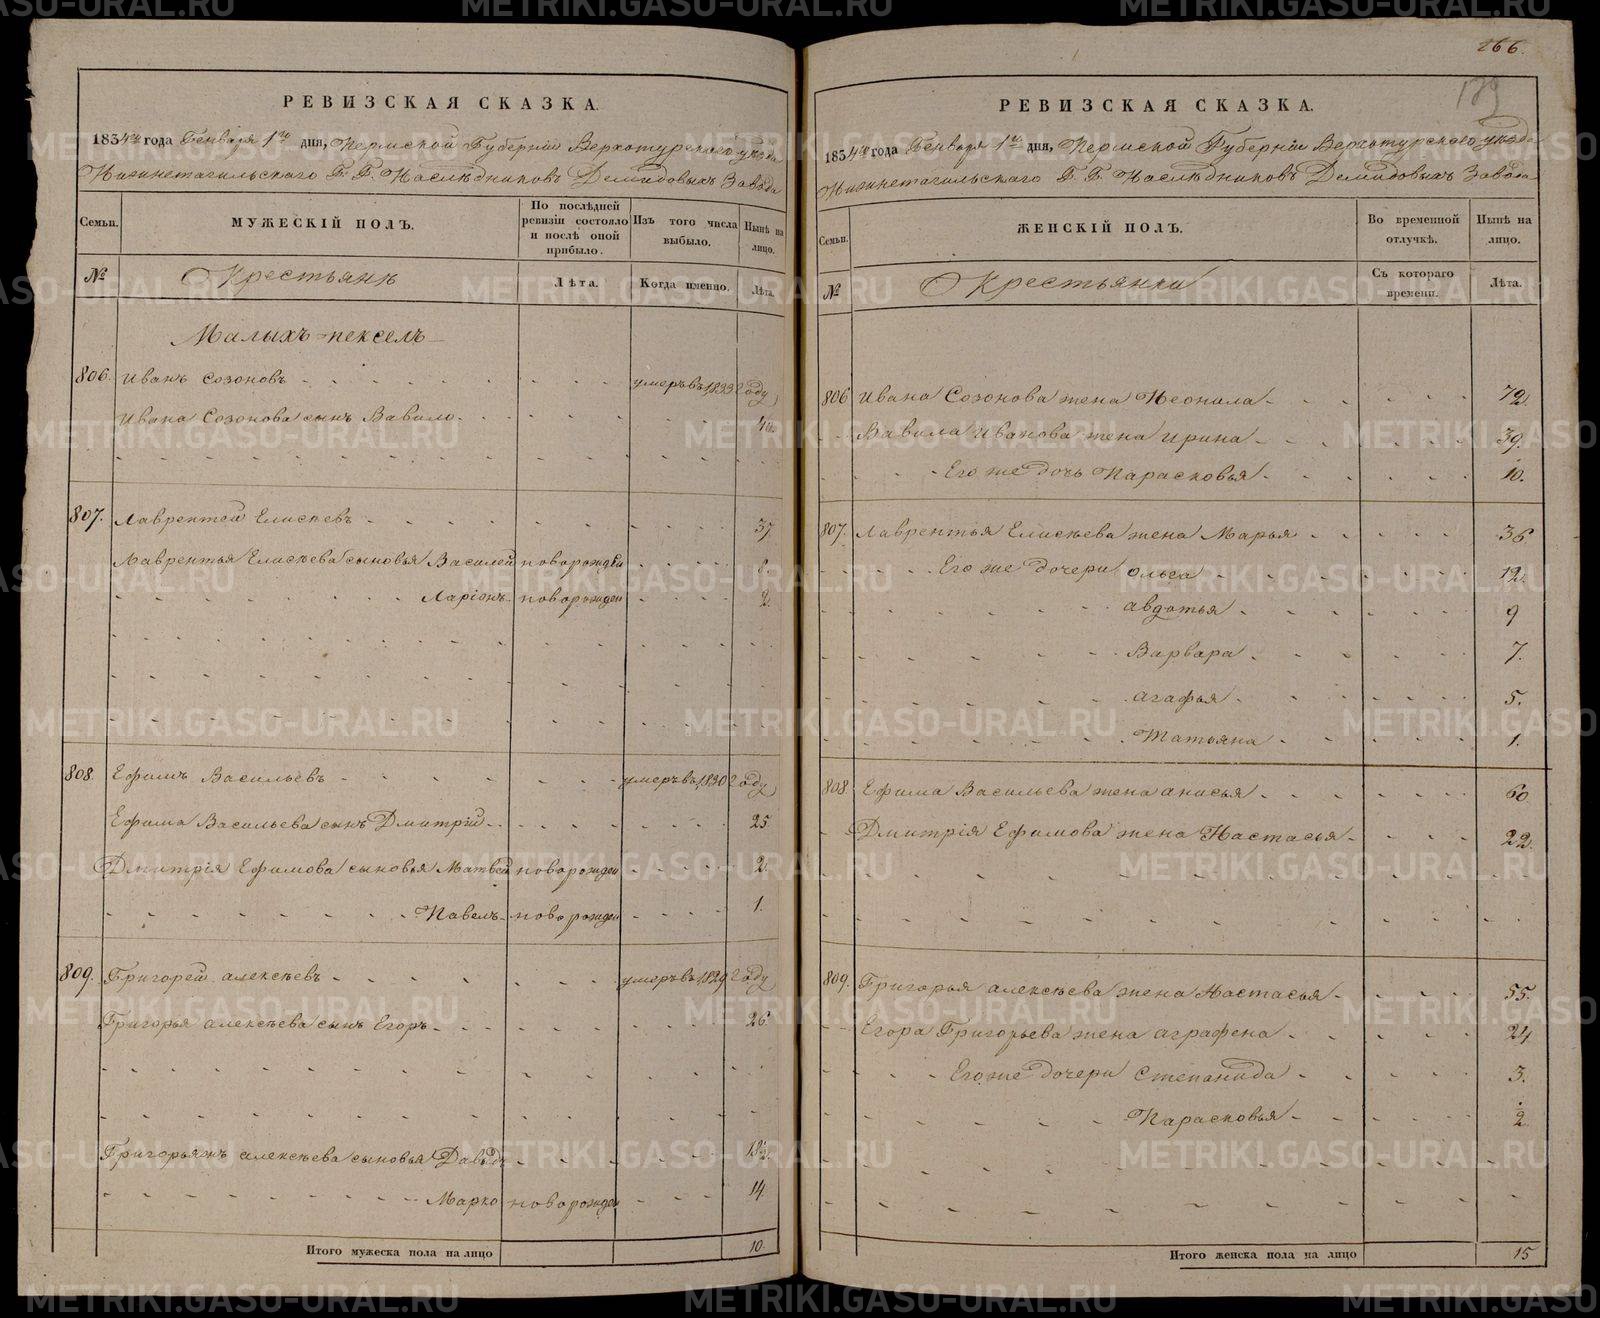 РЕВИЗСКАЯ СКАЗКА.
1834го года Генваря 1го дня, Пермской Губерніи Верхотурскаго уѣзда
Нижнетагильскаго Г. Г. Наслѣдниковъ Демидовыхъ Завода
Семьи.
МУЖЕСКІЙ ПОЛЪ.
По послѣдней ревизіи состояло и послѣ оной прибыло.
Изъ того числа выбыло.
Нынѣ на лицо.
№
Крестьянѣ
Лѣта.
Когда именно.
Лѣта.
806. Иванъ Созоновъ умеръ въ 1833 году
Ивана Созонова сынъ Вавило
807. Лаврентей Елисѣевъ 37
Лаврентья Елисѣева сыновья Василей новорожден
Ларіонъ новорожден 2.
808. Ефимъ Васильевъ умеръ въ 1830 году
Ефима Васильева сынъ Дмитрій 25
Дмитрія Ефимова сыновья Матвей новорожден 2.
Павелъ новорожден 1.
809. Григорей алексѣевъ умеръ въ 1829 году
Григорья алексѣева сынъ Егоръ 26
Григорья алексѣева сыновья Давыдъ
Марко новорожден 14
Итого мужеска пола на лицо 10.
266.
189
РЕВИЗСКАЯ СКАЗКА.
1834го года Генваря 1го дня, Пермской Губерніи Верхотурскаго уѣзда
Нижнетагильскаго Г. Г. Наслѣдниковъ Демидовыхъ Завода
Семьи.
ЖЕНСКІЙ ПОЛЪ.
Во временной отлучкѣ.
Нынѣ на лицо.
№
Крестьянки
Съ котораго времени.
Лѣта.
806 Ивана Созонова жена Неонила 72
Вавила Иванова жена Ирина 39.
Его же дочь Парасковья 10.
807. Лаврентья Елисѣева жена Марья 36
Его же дочери Ольга 12.
авдотья 9
Варвара 7.
агафья 5.
Татьяна 1.
808 Ефима Васильева жена анисья 60
Дмитрія Ефимова жена Настасья 22.
809. Григорья алексѣева жена Настасья 55.
Егора Григорьева жена аграфена 24
Его же дочери Степанида 3.
Парасковья 2
Итого женска пола на лицо 15
METRIKI.GASO-URAL.RU